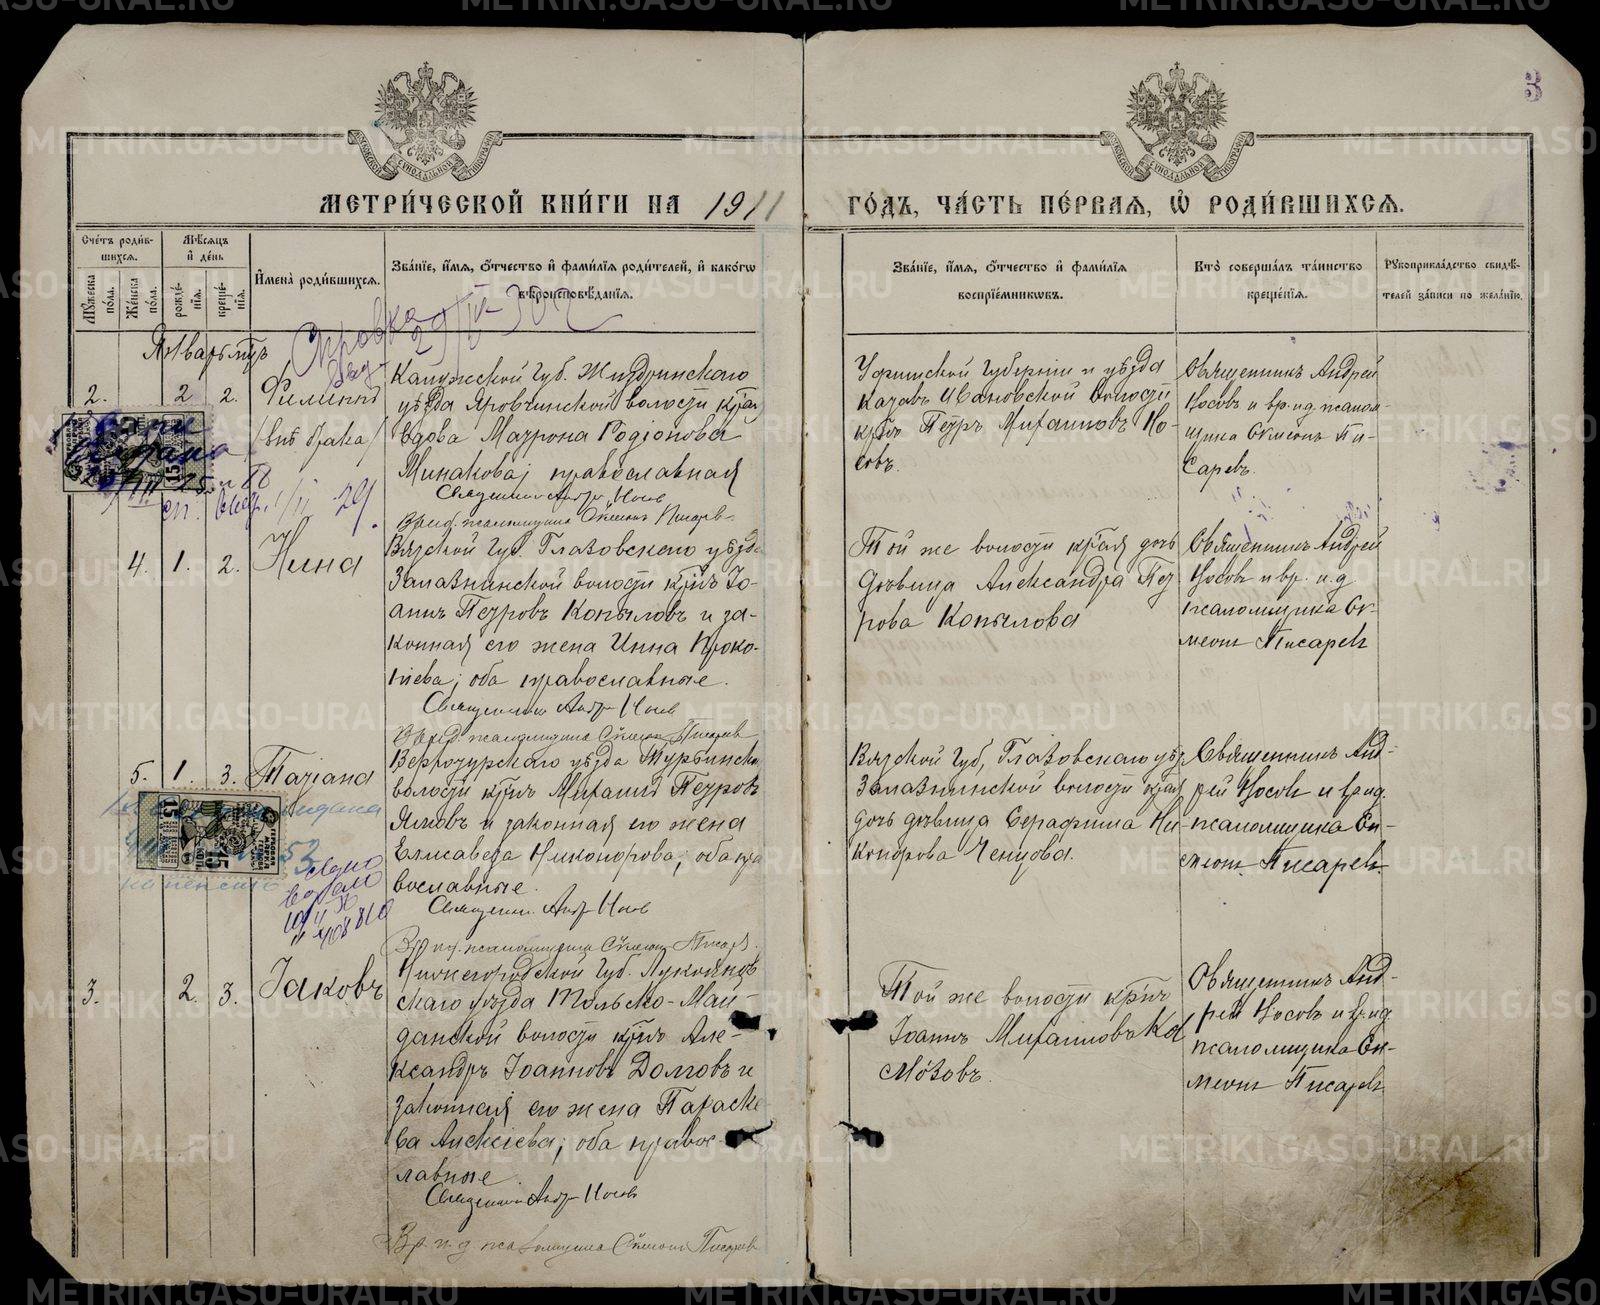 3
МЕТРИ́ЧЕСКОЙ КНИ́ГИ НА 1911
ГО́ДЪ, ЧА́СТЬ ПЕ́РВАЯ, Ѡ҆ РОДИ́ВШИХСЯ.
Сче́тъ роди́в-
шихся.
Мѣ́сяцъ
и҆ де́нь
Му́жеска по́ла.
Же́нска по́ла.
рожде́-
нїя.
креще́-
нїя.
И҆мена̀ роди́вшихся.
Зва́нїе, и҆́мя, ѻ҆́тчество и҆ фами́лїя роди́телей, и҆ како́гѡ
вѣроисповѣ́данїя.
Зва́нїе, и҆́мя, ѻ҆́тчество и҆ фами́лїя
воспрїе́мникѡвъ.
Кто̀ соверша́лъ та́инство
креще́нїя.
Рꙋкоприкла́дство свидѣ́-
телей за́писи по жела́нїю.
Справка
29/IV-30
Январь мцъ
2. 2 2. Филиппъ
/внѣ брака/
Калужской Губ. Жиздринскаго
уѣзда Яровчинской волости кр.
вдова Матрона Родіонова
Минакова; православная
Священникъ Андр. Носовъ
Вр. и. д. псаломщика Симеонъ Писаревъ
Уфимской Губерніи и уѣзда
Казавъ Ивановской волости
кр̃нъ Петръ Михаиловъ Но-
совъ.
Священникъ Андрей
Носовъ и вр. и. д. псалом-
щика Симеонъ Пи-
саревъ.
4. 1. 2. Нина
Вятской Губ. Глазовскаго уѣзда
Залазнинской волости кр̃нъ Іо-
аннъ Петровъ Копыловъ и за-
конная его жена Инна Проко-
піева; оба православные.
Священникъ Андр. Носовъ
Вр. и. д. псаломщика Симеонъ Писаревъ
Той же волости кр̃ая дочь
дѣвица Александра Пет-
рова Копылова
Священникъ Андрей
Носовъ и вр. и. д.
псаломщика Си-
меонъ Писаревъ
5. 1. 3. Татіана
Верхотурскаго уѣзда Турьинской
волости кр̃нъ Михаилъ Петровъ
Ялковъ и законная его жена
Елисавета Никонорова; оба пра
вославные.
Священник. Андр. Носовъ
Вр. и. д. псаломщика Симеонъ Писаревъ
Вятской Губ, Глазовскаго уѣз.
Залазнинской волости кр̃ая
дочь дѣвица Серафима Ни-
конорова Ченцова.
Священникъ Анд-
рей Носовъ и вр. и. д.
псаломщика Си-
меонъ Писаревъ.
3. 2. 3. Іаковъ
Нижегородской Губ. Лукоянов
скаго уѣзда Тольско-Май-
данской волости кр̃нъ Але-
ксандръ Іоанновъ Долговъ и
законная его жена Параске-
ва Алексіева; оба правос-
лавные.
Священникъ Андр. Носовъ
Вр. и. д. псаломщика Симеонъ Писаревъ
Той же волости кр̃нъ
Іоаннъ Михаиловъ Ка
Священникъ Анд-
рей Носовъ и вр. и. д.
псаломщика Си-
меонъ Писаревъ
METRIKI.GASO-URAL.RU